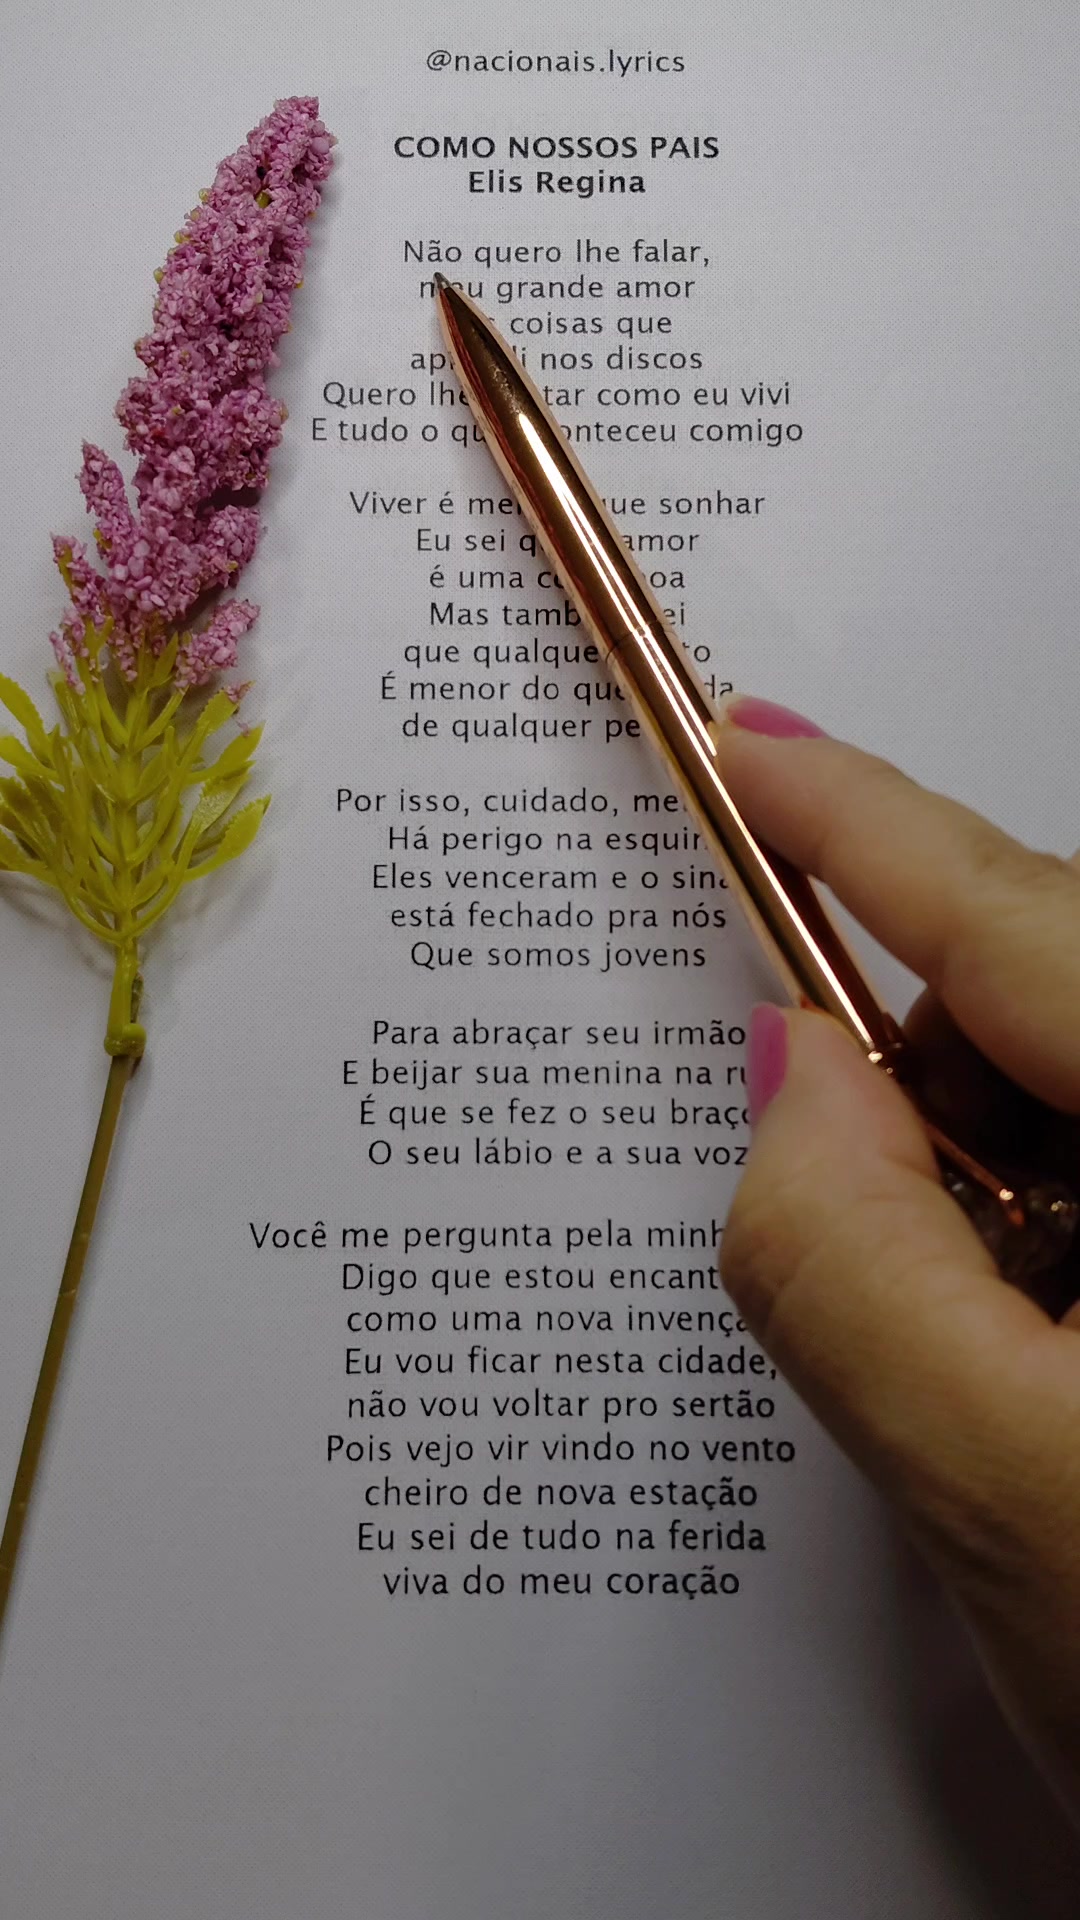 @nacionais.lyrics
COMO NOSSOS PAIS
Elis Regina
Não quero lhe falar,
meu grande amor
coisas que
nos discos
Quero lhe como eu vivi
E tudo o comigo
Viver é que sonhar
Eu sei amor
é uma
Mas
que
É menor do
de qualquer
Por isso, cuidado,
Há perigo na
Eles venceram e o
está fechado pra nós
Que somos jovens
Para abraçar seu irmão
E beijar sua menina na
É que se fez o seu braço
O seu lábio e a sua voz
Você me pergunta pela
Digo que estou
como uma nova
Eu vou ficar nesta cidade,
não vou voltar pro sertão
Pois vejo vir vindo no vento
cheiro de nova estação
Eu sei de tudo na ferida
viva do meu coração